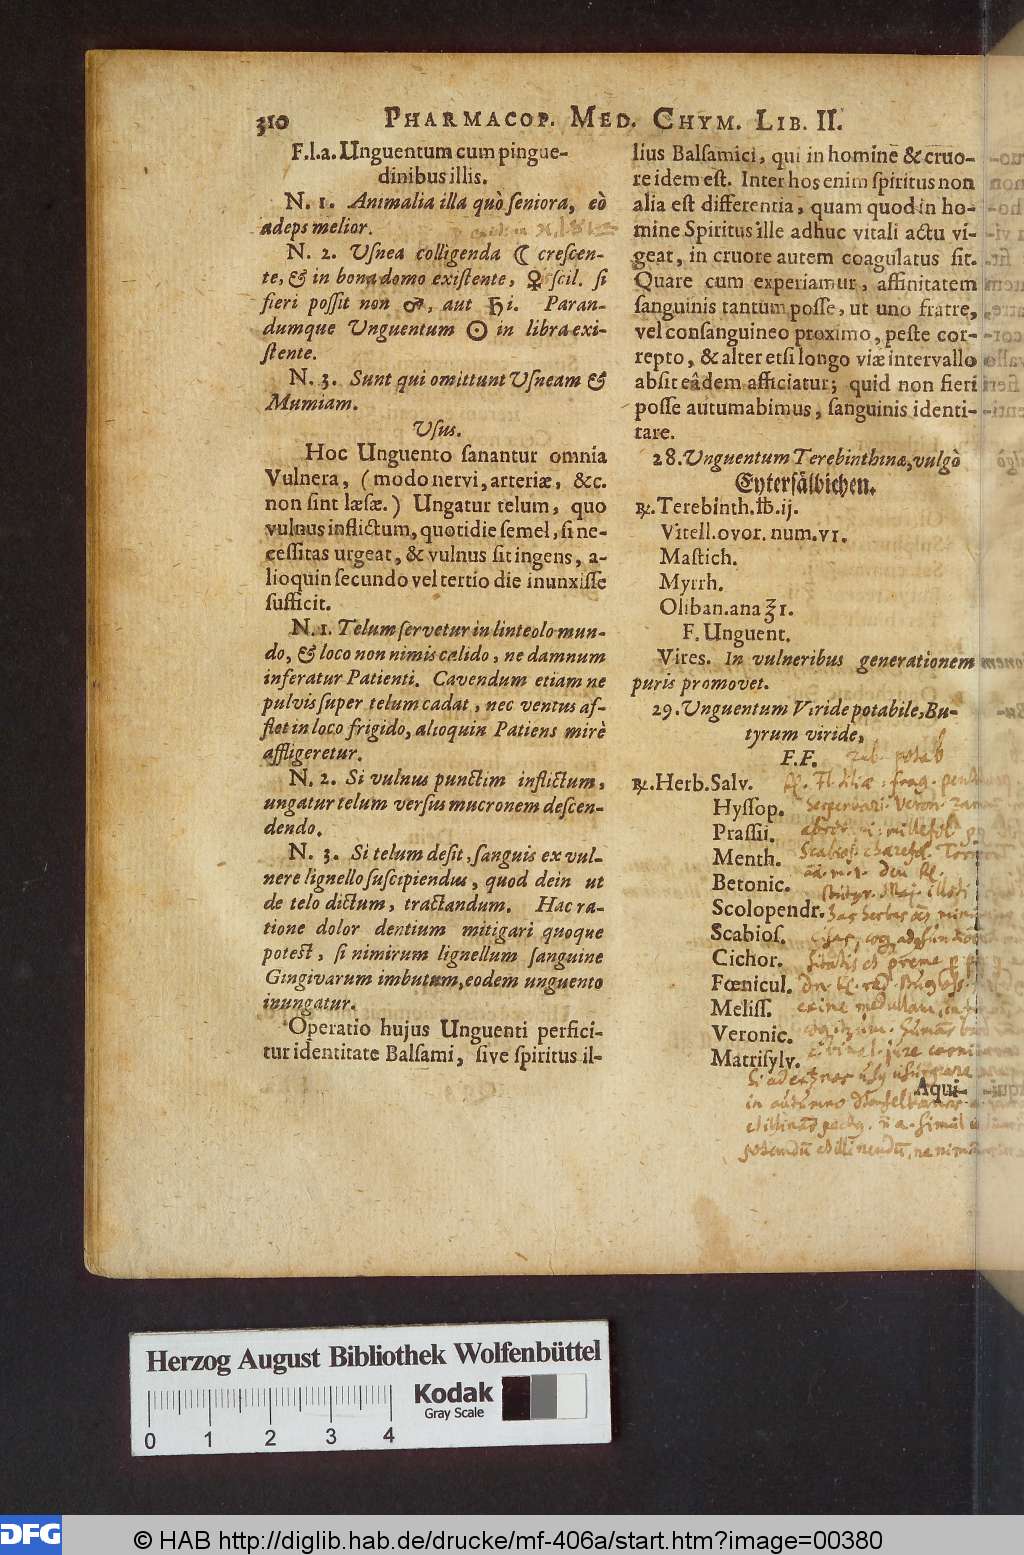 310 PHARMACOP. MED. CHYM. LIB. II.
F.l.a. Unguentum cum pingue-
dinibus illis.
N. 1. Animalia illa quò ſeniora, eò
adeps melior.
N. 2. Uſnea colligenda ☾ creſcen-
te, & in bona domo exiſtente, ♀ ſcil. ſi
fieri poſſit non ♂, aut ♄i. Paran-
dumque Unguentum ☉ in libra exi-
ſtente.
N. 3. Sunt qui omittunt Uſneam &
Mumiam.
Uſus.
Hoc Unguento ſanantur omnia
Vulnera, (modo nervi, arteriæ, &c.
non ſint læſæ.) Ungatur telum, quo
vulnus inflictum, quotidie ſemel, ſi ne-
ceſſitas urgeat, & vulnus ſit ingens, a-
lioquin ſecundo vel tertio die inunxiſſe
ſufficit.
N. 1. Telum ſervetur in linteolo mun-
do, & loco non nimis calido, ne damnum
inferatur Patienti. Cavendum etiam ne
pulvis ſuper telum cadat, nec ventus af-
flet in loco frigido, alioquin Patiens mirè
affligeretur.
N. 2. Si vulnus punctim inflictum,
ungatur telum verſus mucronem deſcen-
dendo.
N. 3. Si telum deſit, ſanguis ex vul-
nere lignello ſuſcipiendus, quod dein ut
de telo dictum, tractandum. Hac ra-
tione dolor dentium mitigari quoque
poteſt, ſi nimirum lignellum ſanguine
Gingivarum imbutum, eodem unguento
inungatur.
Operatio hujus Unguenti perfici-
tur identitate Balſami, ſive ſpiritus il-
lius Balſamici, qui in homine & cruo-
re idem eſt. Inter hos enim ſpiritus non
alia eſt differentia, quam quod in ho-
mine Spiritus ille adhuc vitali actu vi-
geat, in cruore autem coagulatus ſit.
Quare cum experiamur, affinitatem
ſanguinis tantum poſſe, ut uno fratre,
vel conſanguineo proximo, peſte cor-
repto, & alter etſi longo viæ intervallo
abſit eâdem afficiatur; quid non fieri
poſſe autumabimus, ſanguinis identi-
tate.
28. Unguentum Terebinthinæ, vulgò
Eyterſälbichen.
℞. Terebinth. ℔. ij.
Vitell. ovor. num. VI.
Maſtich.
Myrrh.
Oliban. ana ʒ1.
F. Unguent.
Vires. In vulneribus generationem
puris promovet.
29. Unguentum Viride potabile, Bu-
tyrum viride,
F.F.
℞. Herb. Salv.
Hyſſop.
Praſſii.
Menth.
Betonic.
Scolopendr.
Scabioſ.
Cichor.
Fœnicul.
Meliſſ.
Veronic.
Matriſylv.
Aqui-
Herzog August Bibliothek Wolfenbüttel
0 1 2 3 4
Kodak
Gray Scale
DFG
© HAB http://diglib.hab.de/drucke/mf-406a/start.htm?image=00380